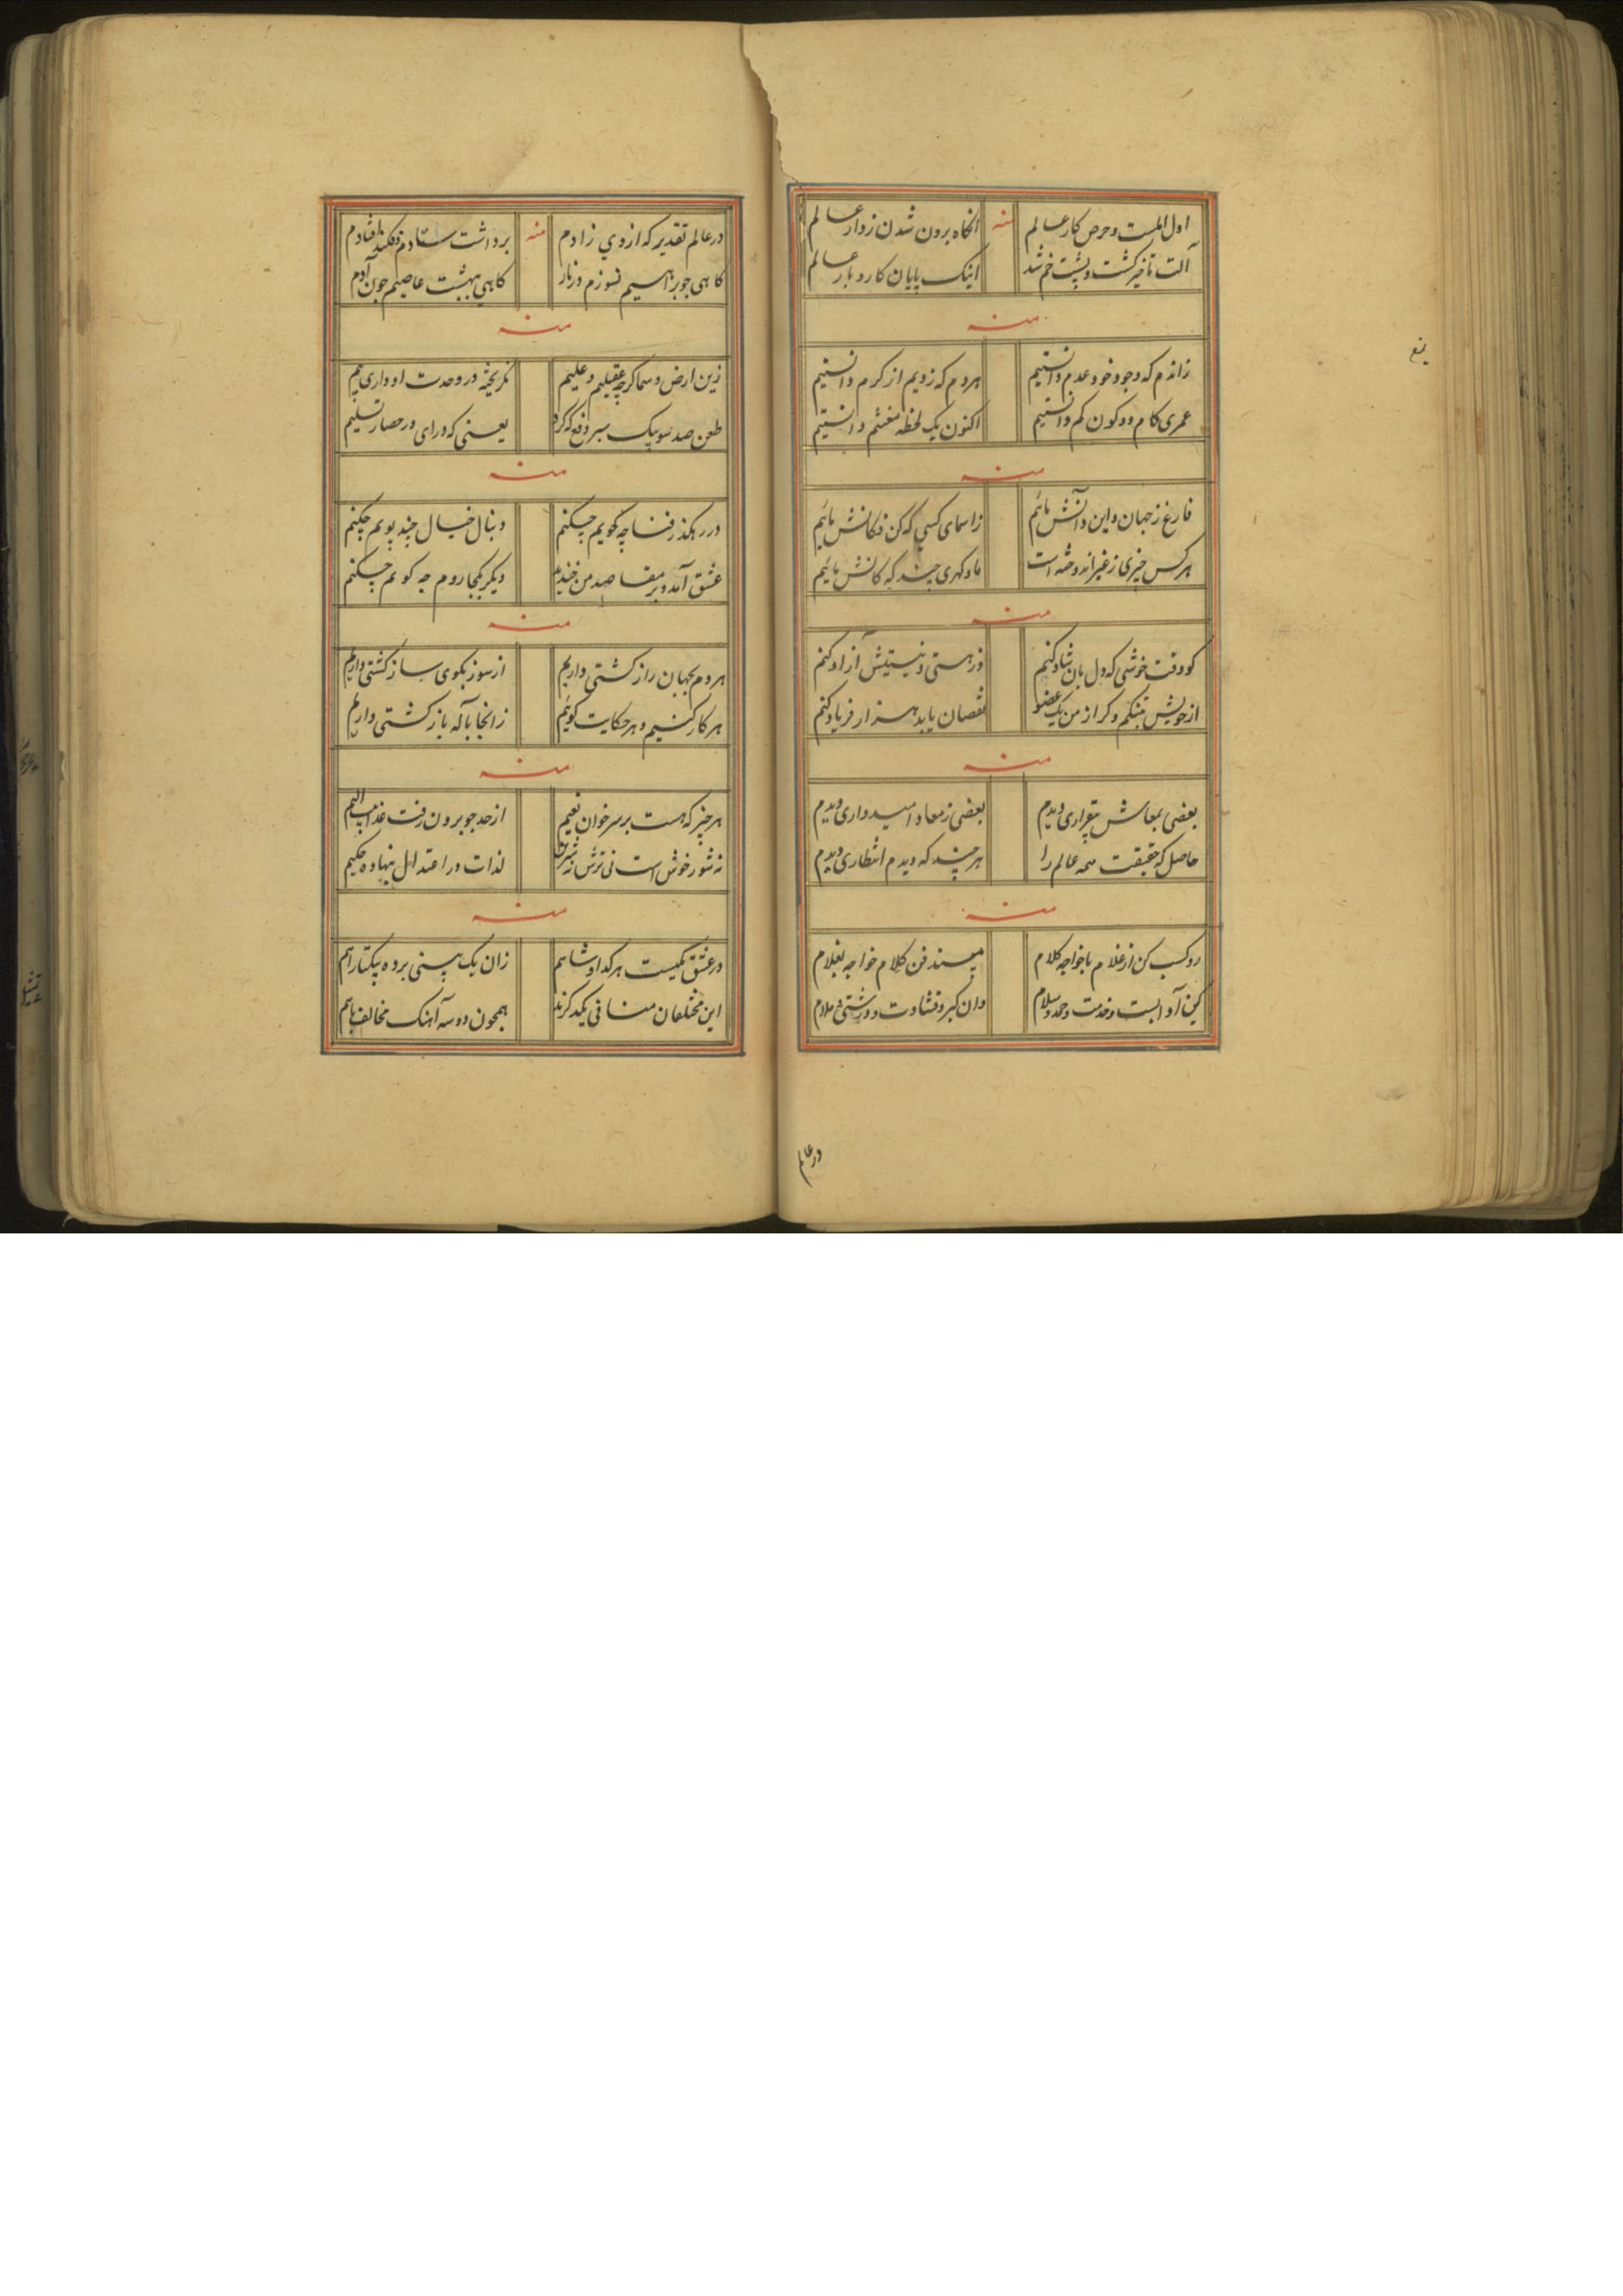 اول المست و حرص کار عالم منه انکاه برون شدن ز دار عالم
آلت تاخیر کشت و پشت خم شد اینک پایان کار و بار عالم
منه
زاندم که وجود خود عدم دانستیم هر دم که زدیم از کرم دانستیم
عمری کام دو کون کم دانستیم اکنون یک لحظه مغتنم دانستیم
منه
فارغ ز جهان و این و آنش مائیم ز اسمای کسی که کن فکانش مائیم
هر کس چیزی ز غیر اندوخته است ما و کهری چند که کانش مائیم
منه
کو وقت خوشی که دل بان شاد کنم وز هستی و نیستیش آزاد کنم
از خویش تنکم و کر از من یک عضو نقصان یابد هزار فریاد کنم
منه
بعضی بمعاش بیقراری دیدم بعضی ز معاد امیدواری دیدم
حاصل که حقیقت همه عالم را هر چند که دیدم انتظاری دیدم
منه
رو کسب کن از غلام با خواجه کلام مپسند فن کلام خواجه بغلام
کین آدابست و خدمت و حمد و سلام وان کبر و قشاوت و درشتی و ملام
در عالم
در عالم تقدیر که از وی زادم منه برداشت ستادم و فکند افتادم
کاهی چو براهیم نسوزم در نار کاهی ببهشت عاصیم چون آدم
منه
زین ارض و سما کرچه عقیلیم و علیم بکریخته در وحدت او واری بیم
طعن صد سو بیک سپر دفع که کرد یعنی که درای در حصار تسلیم
منه
در رهکذر فنا چه کویم چکنم دنبال خیال چند پویم چکنم
عشق آمد و بر مقاصد من خندید دیکر بکجا روم چه کویم چکنم
منه
هر دم بجهان راز کشتی داریم از سوز بکوی ساز کشتی داریم
هر کار کنیم و هر حکایت کوئیم زانجا باله باز کشتی داریم
منه
هر چیز که هست بر سر خوان نعیم از حد چو برون رفت عذابیست الیم
نه شور خوش است نی ترش نه شیرین لذات در اعتدال بنهاده حکیم
منه
در عشق یکیست هر کدا و شاهم زان یک بینی برده بیکتا راهم
این مختلفان منافی یکدکرند همچون دو سه آهنک مخالف باهم